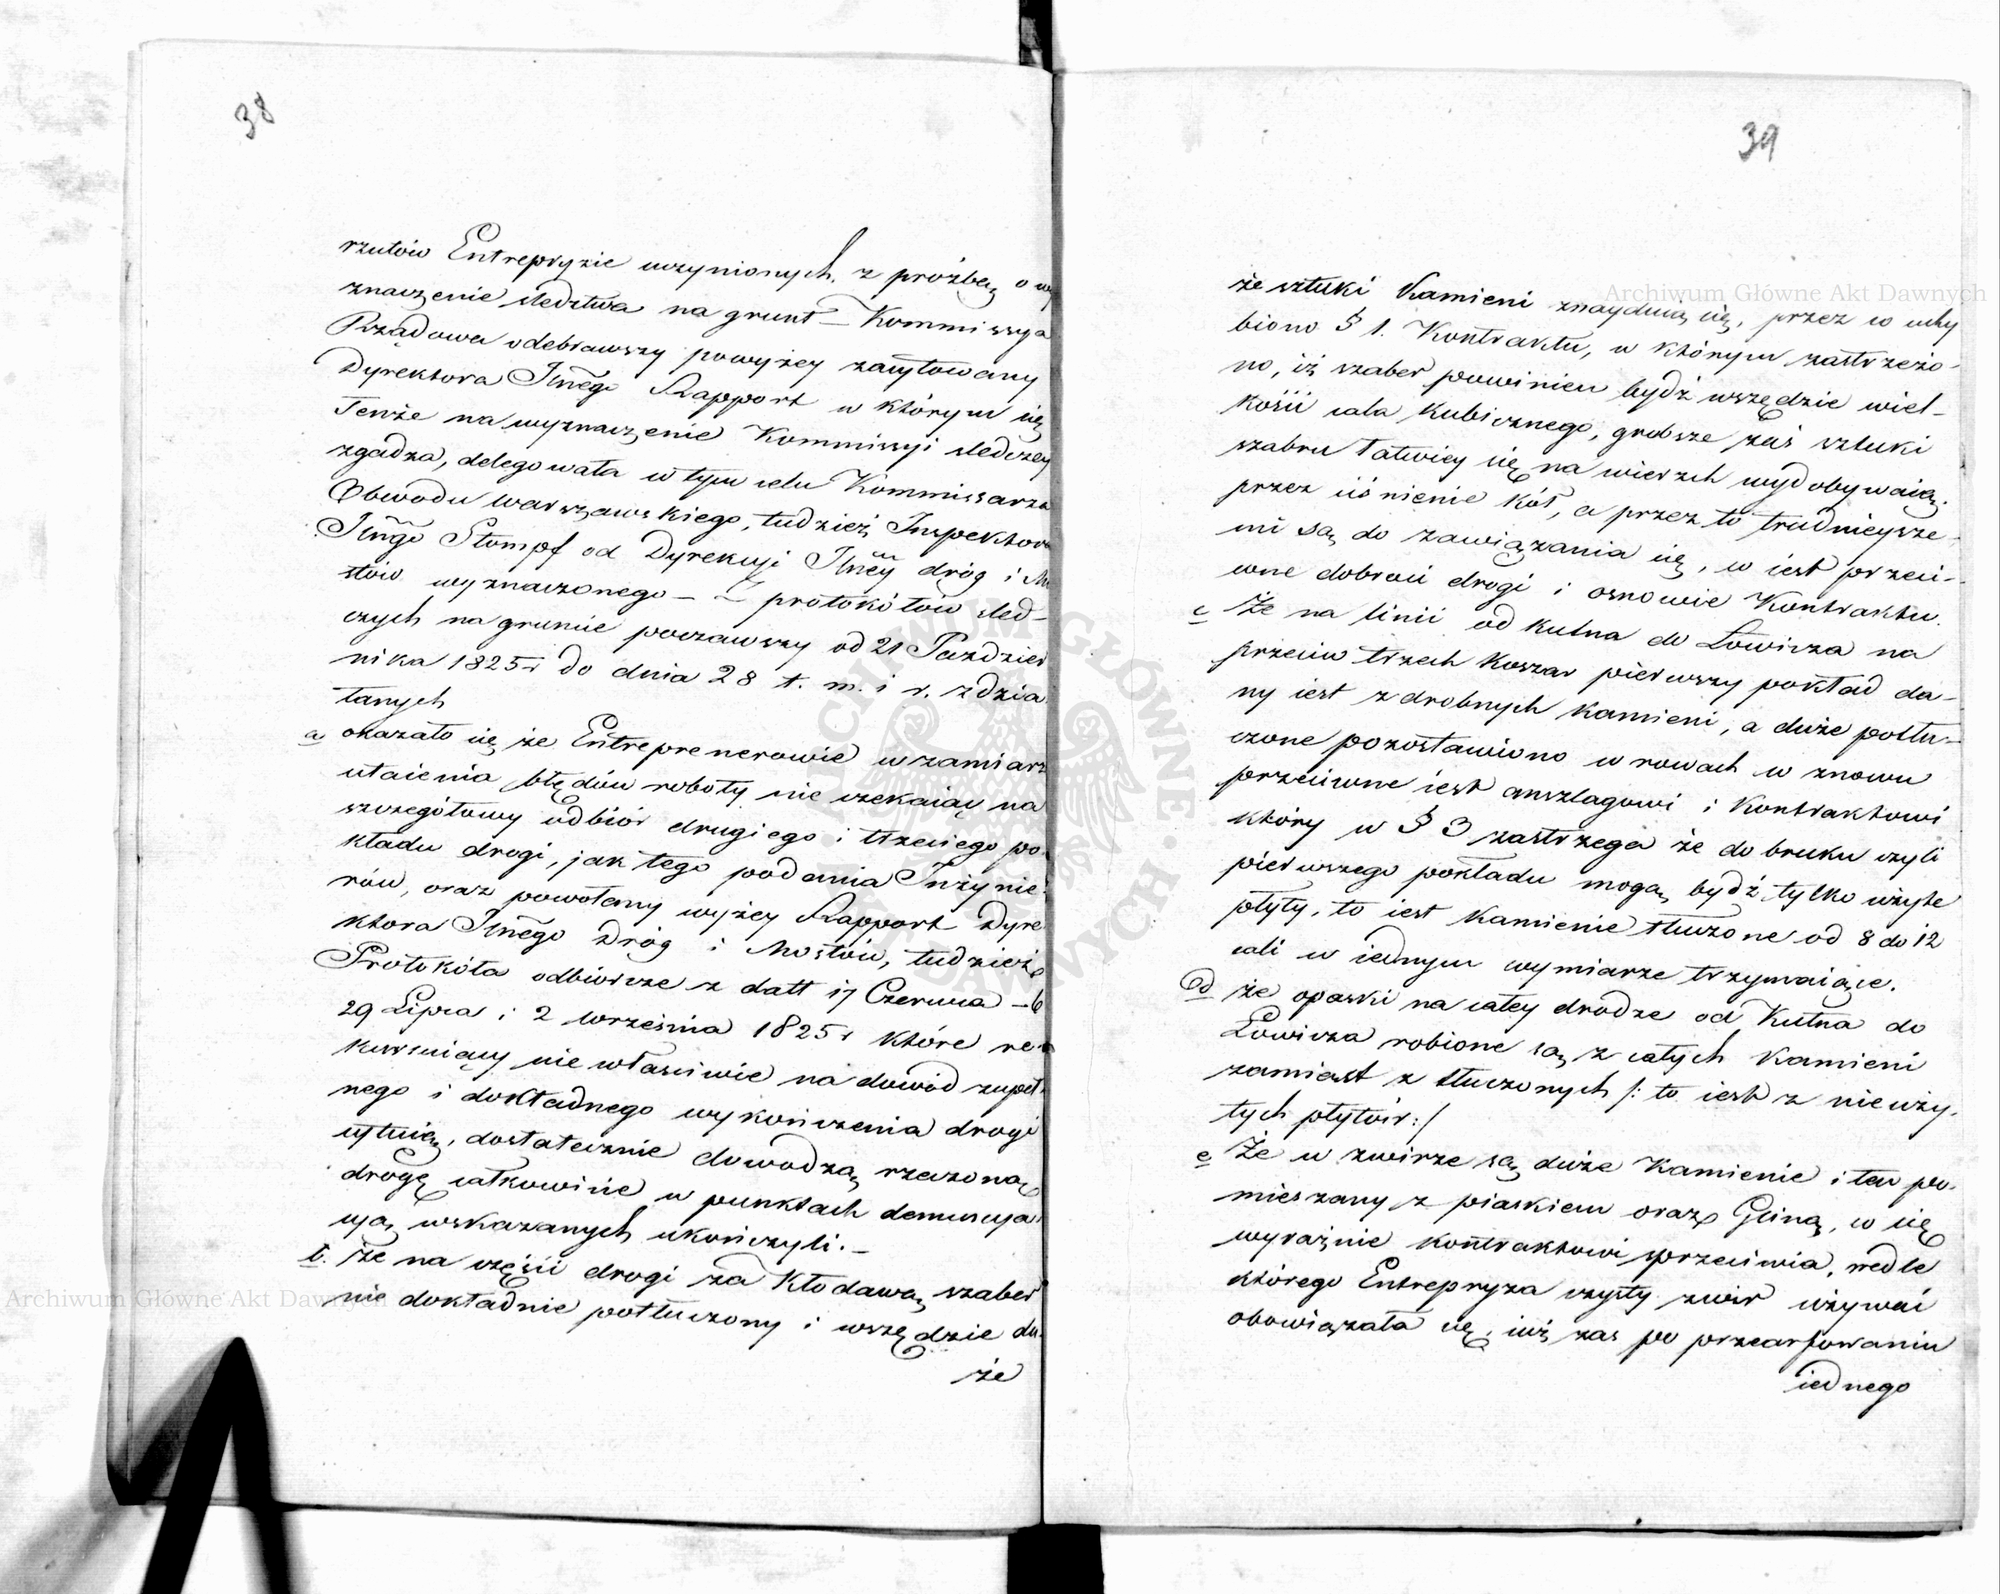 38
rzutów Entrepryzie uczynionych, z prośbą o wy
znaczenie śledztwa na grunt – Kommissya
Rządowa odebrawszy powyżey zacytowany
Dyrektora Jlnego Rapport w którym się
Tenże na wyznaczenie Kommissyi śledczey
zgadza, delegowała w tym celu Kommissarza
Obwodu Warszawskiego, tudzież Inspektora
Jlngo Stompf od Dyrekcyi Jlney dróg i Mo
stów wyznaczonego – Z protokółów śled-
czych na gruncie począwszy od 21 Paździer
nika 1825 r do dnia 28 t. m. i r. zdzia
łanych
a okazało się że Entreprenerowie w zamiarze
utaienia błędów roboty nie czekaiąc na
szczegółowy odbiór drugiego i trzeciego po-
kładu drogi, jak tego podania Inżynie-
rów, oraz powołany wyżey Rapport Dyre
ktora Jlnego Dróg i Mostów, tudzież
Protokóła odbiorcze z datt 17 Czerwca – 6
29 Lipca i 2 Września 1825 r które re-
kursuiący nie właściwie na dowód zupeł-
nego i dokładnego wykończenia drogi
cytuią, dostatecznie dowodzą, rzeczoną
drogę całkowicie w punktach denuncya-
cyą wskazanych ukończyli. –
b. że na części drogi za Kłodawą szaber
nie dokładnie potłuczony i wszędzie du-
że
39
że sztuki Kamieni znayduią się, przez co uchy
biono § 1. Kontraktu, w którym zastrzeżo-
no, iż szaber powinien bydź wszędzie wiel-
kości cala Kubicznego, grubsze zaś sztuki
szabru łatwiey się na wierzch wydobywaią,
przez ciśnienie kół, a przez to trudnieysze-
mi są do zawiązania się, co iest przeci-
wne dobroci drogi i osnowie Kontraktu.
c Że na linii od Kutna do Łowicza na
przeciw trzech Koszar pierwszy pokład da-
ny iest z drobnych Kamieni, a duże potłu-
czone pozostawiono w rowach co znowu
przeciwne iest anszlagowi i Kontraktowi
który w § 3 zastrzega że do bruku czyli
pierwszego pokładu mogą bydź tylko użyte
płyty, to iest Kamienie tłuczone od 8 do 12
cali w iednym wymiarze trzymaiące.
d że opaski na całey drodze od Kutna do
Łowicza robione są z całych Kamieni
zamiast z tłuczonych /: to iest z nieuży-
tych płytów :/
e Że w zwirze są duże Kamienie i ten po-
mieszany z piaskiem oraz Gliną, co się
wyraźnie kontraktowi sprzeciwia, wedle
którego Entrepryza czysty zwir używać
obowiązała się, iuż zas po przearfowaniu
iednego
Archiwum Główne Akt Dawnych
Archiwum Główne Akt Dawnych
ARCHIWUM GŁÓWNE AKT DAWNYCH